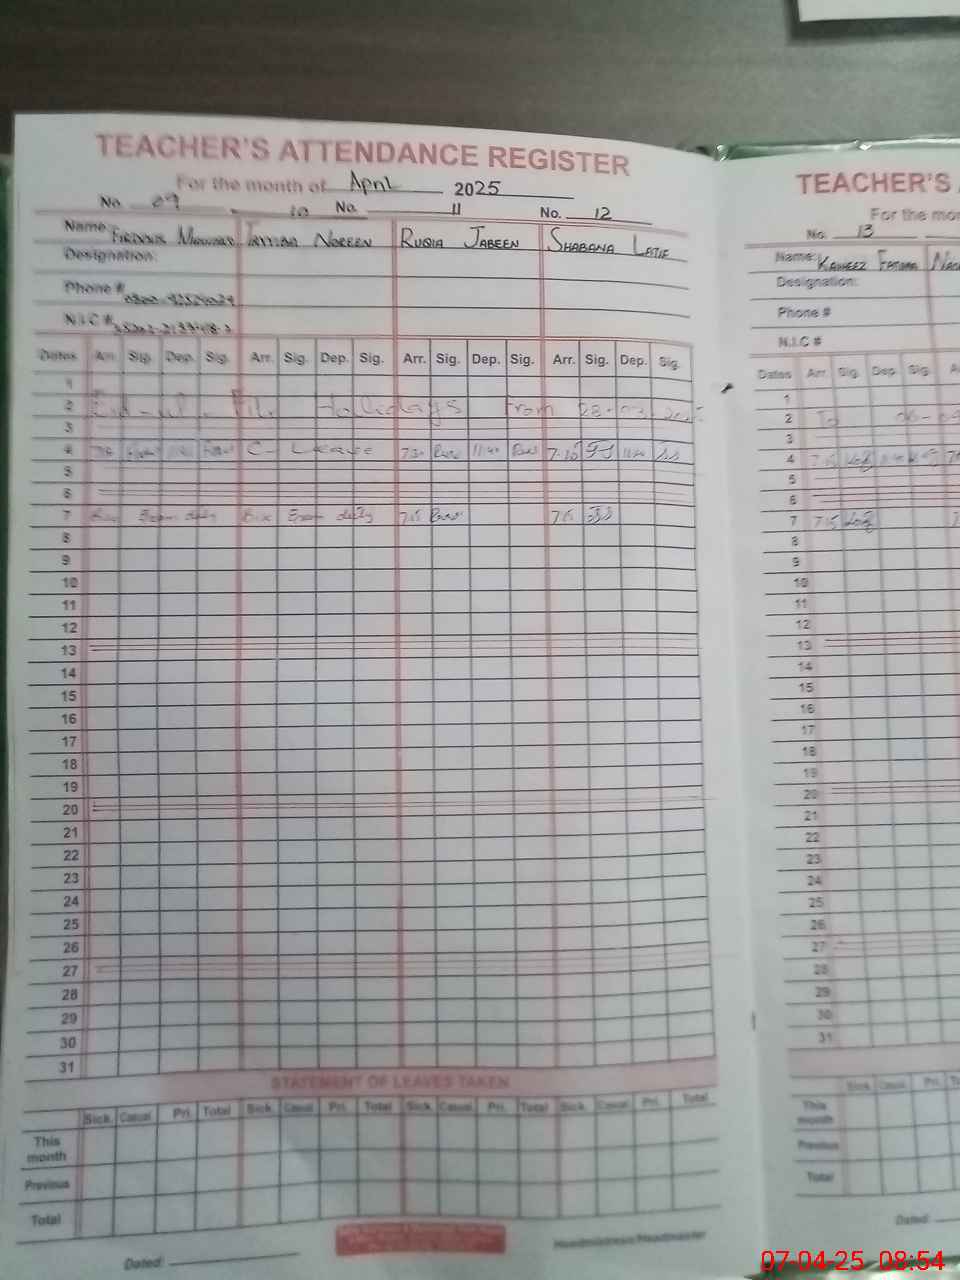 TEACHER'S ATTENDANCE REGISTER
For the month of April 2025
No. 09 10 No. 11 No. 12
Name Noreen Ruqia Jabeen Shabana Latif
Designation:
Phone #
N.I.C #
Dates Arr. Sig. Dep. Sig. Arr. Sig. Dep. Sig. Arr. Sig. Dep. Sig. Arr. Sig. Dep. Sig.
1
2 Eid-ul-Fitr Holidays from 28-03-2025
3
4 C- Leave 7:30 11:40 7:10 11:40
5
6
7 Exam duty Exam duty 7:15 7:15
8
9
10
11
12
13
14
15
16
17
18
19
20
21
22
23
24
25
26
27
28
29
30
31
STATEMENT OF LEAVES TAKEN
Sick. Casual Pri. Total Sick. Casual Pri. Total Sick. Casual Pri. Total Sick. Casual Pri. Total
This month
Previous
Total
Dated:
Headmistress/Headmaster
TEACHER'S
For the mo
No. 13
Name: Kaneez Fatima
Designation:
Phone #
N.I.C #
Dates Arr. Sig. Dep. Sig.
1
2 To 06-04
3
4 7:15
5
6
7 7:15
8
9
10
11
12
13
14
15
16
17
18
19
20
21
22
23
24
25
26
27
28
29
30
31
Sick. Casual Pri.
This month
Previous
Total
Dated:
07-04-25 08:54